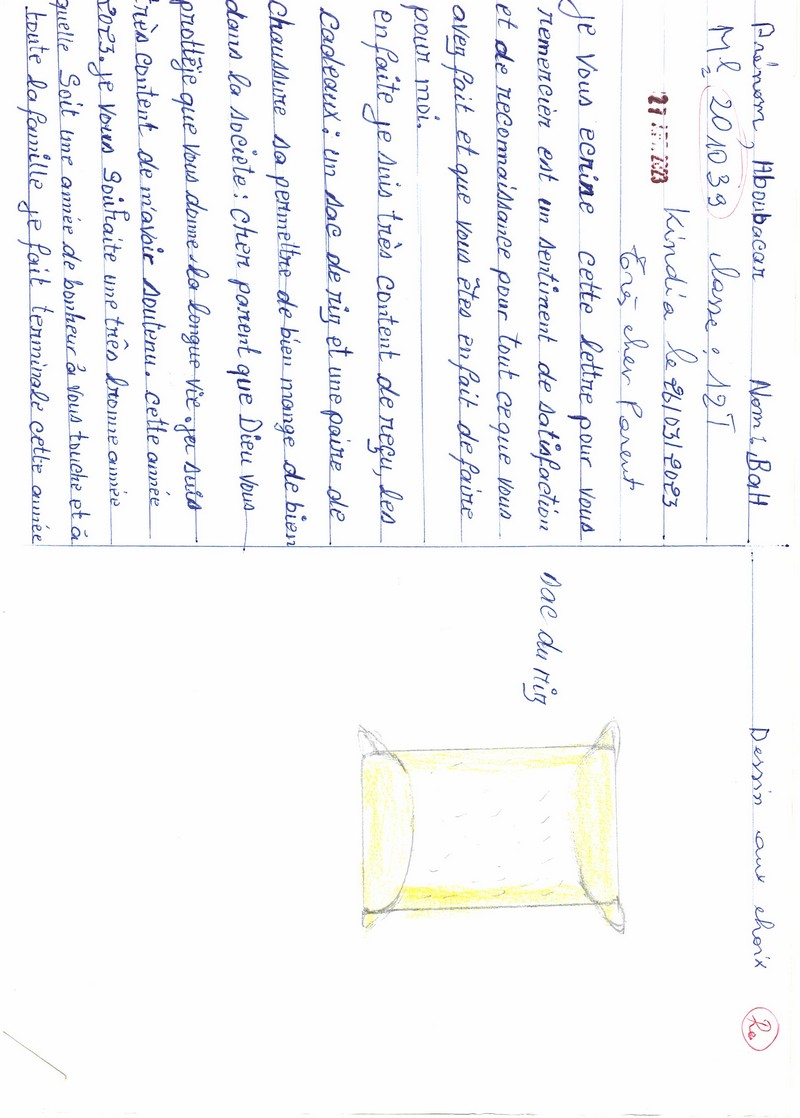 Prénom, Aboubacar Nom: BaH
Ml 201039 classe: 12T
Kindia le 23/03/2023
Très cher Parent
je vous ecrine cette lettre pour vous
remercier est un sentiment de satisfaction
et de reconnaissance pour tout ce que vous
avez fait et que vous êtes en fait de faire
pour moi.
en faite je suis très content de reçu, les
cadeaux: un sac de riz et une paire de
chaussure sa permettre de bien mange de bien
dans la societe: cher parent que Dieu vous
prottèje que vous donne la longue vie. jeu suis
très content de m'avoir soutenu. cette année
2023. je vous souhaite une très bonne année
quelle soit une année de bonheur à vous touche et à
toute la famille je fait terminale cette année
Dessin aux choix
Sac du riz